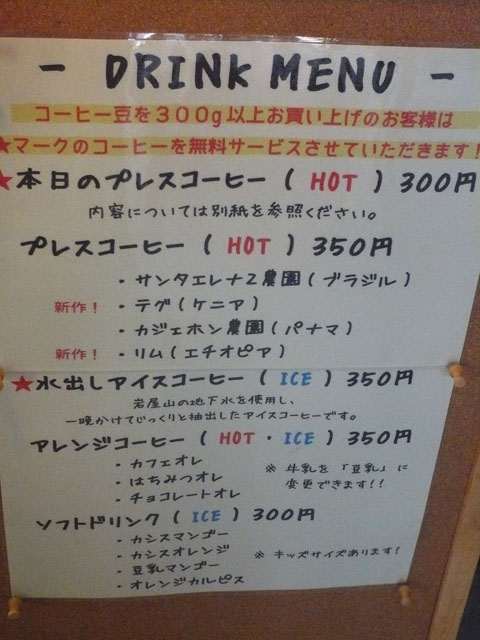 - DRINK MENU -
コーヒー豆を300g以上お買い上げのお客様は
★マークのコーヒーを無料サービスさせていただきます!
★本日のプレスコーヒー ( HOT ) 300円
内容については別紙を参照ください。
プレスコーヒー ( HOT ) 350円
・サンタエレナ2農園 ( ブラジル )
新作! ・テグ ( ケニア )
・カジェホン農園 ( パナマ )
新作! ・リム ( エチオピア )
★水出しアイスコーヒー ( ICE ) 350円
岩屋山の地下水を使用し、
一晩かけてじっくりと抽出したアイスコーヒーです。
アレンジコーヒー ( HOT・ICE ) 350円
・カフェオレ ※ 牛乳を「豆乳」に
・はちみつオレ 変更できます!!
・チョコレートオレ
ソフトドリンク ( ICE ) 300円
・カシスマンゴー
・カシスオレンジ ※ キッズサイズあります!
・豆乳マンゴー
・オレンジカルピス